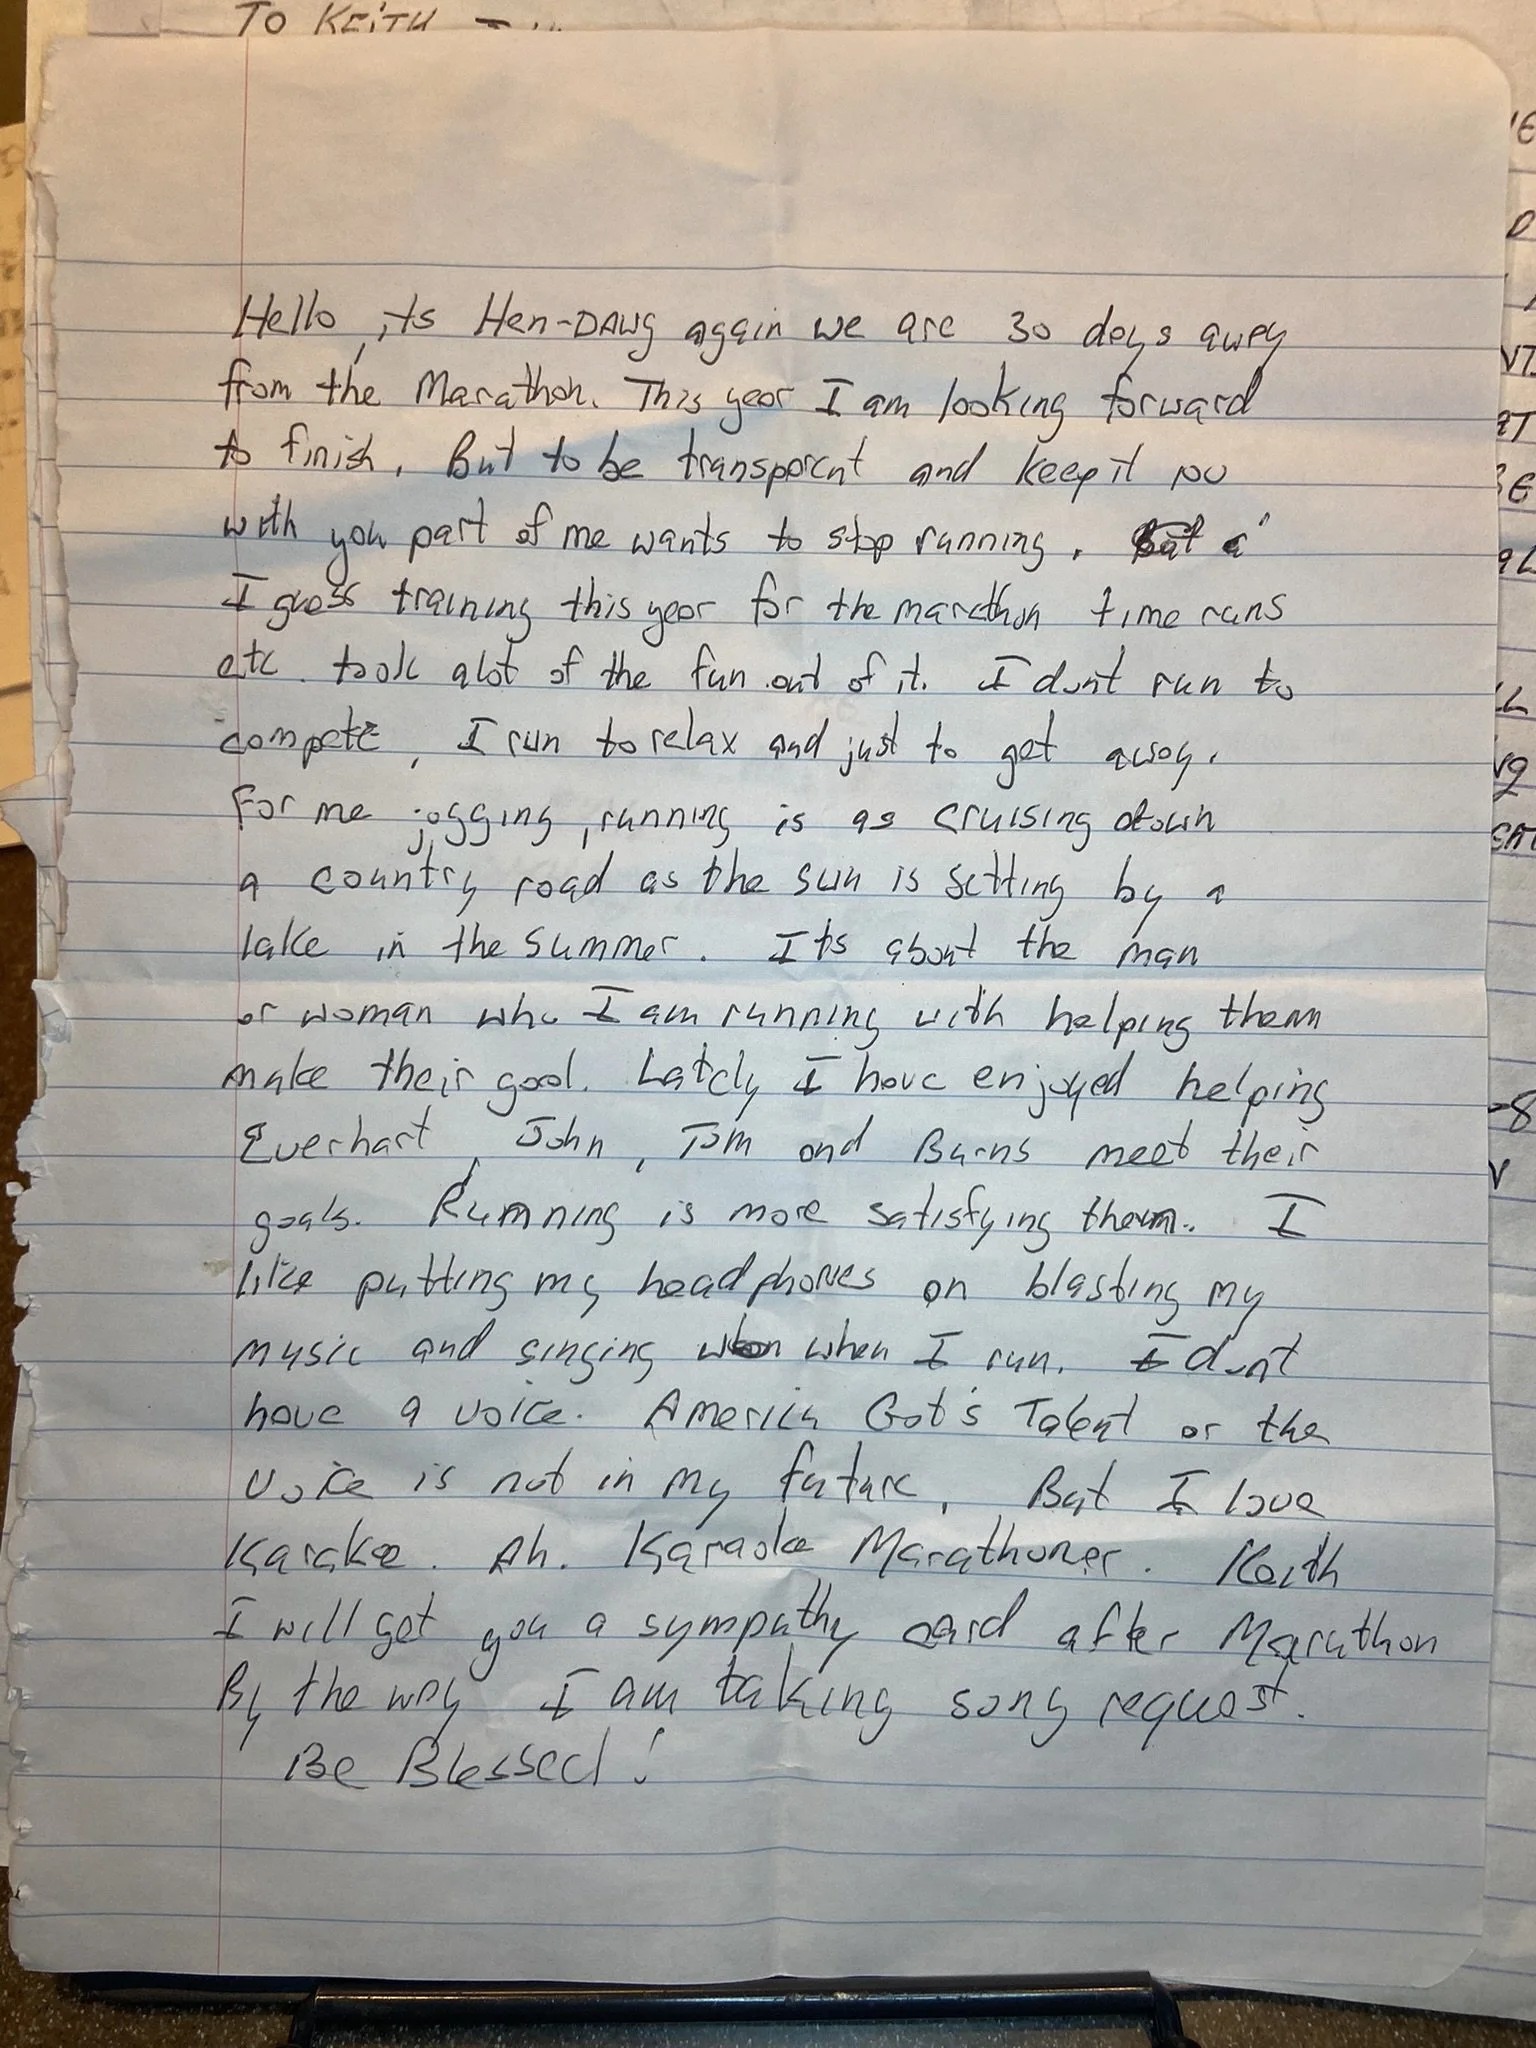 TO KEITH
Hello, its Hen-DAWG again we are 30 days away
from the Marathon. This year I am looking forward
to finish. But to be transparent and keep it
with you part of me wants to stop running.
I guess training this year for the marathon time runs
etc. took alot of the fun out of it. I dont run to
compete, I run to relax and just to get away.
For me jogging, running is as cruising down
a country road as the sun is setting by a
lake in the summer. Its about the man
or woman who I am running with helping them
make their goal. Lately I have enjoyed helping
Everhart, John, Tom and Burns meet their
goals. Running is more satisfying them. I
like putting my headphones on blasting my
music and singing when I run. I dont
have a voice. America Got's Talent or the
voice is not in my future. But I love
Karakoe. Ah. Karaoke Marathoner. Keith
I will get you a sympathy card after Marathon
By the way I am taking song request.
Be Blessed!